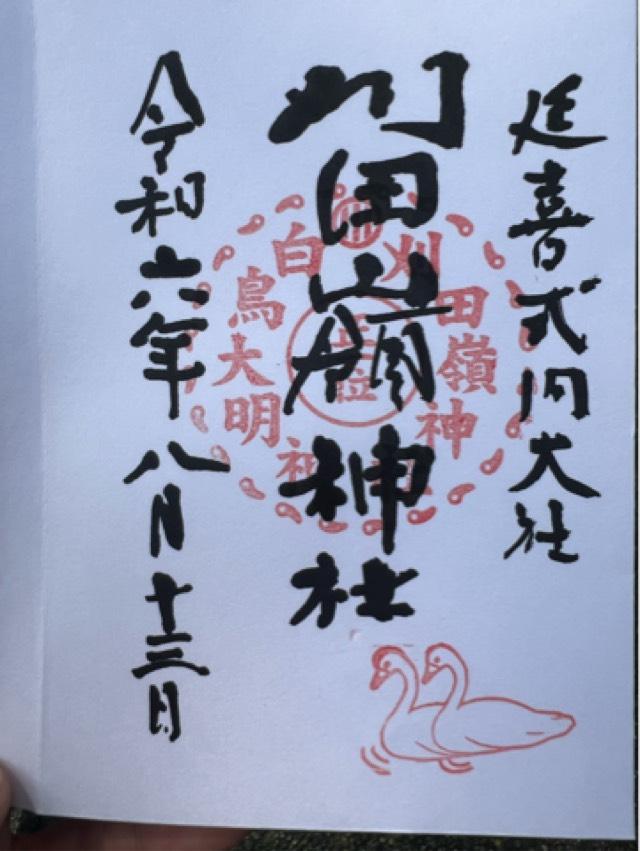 延喜式内大社
刈田嶺神社
令和六年八月十三日
刈田嶺神社
白鳥大明神
正一位